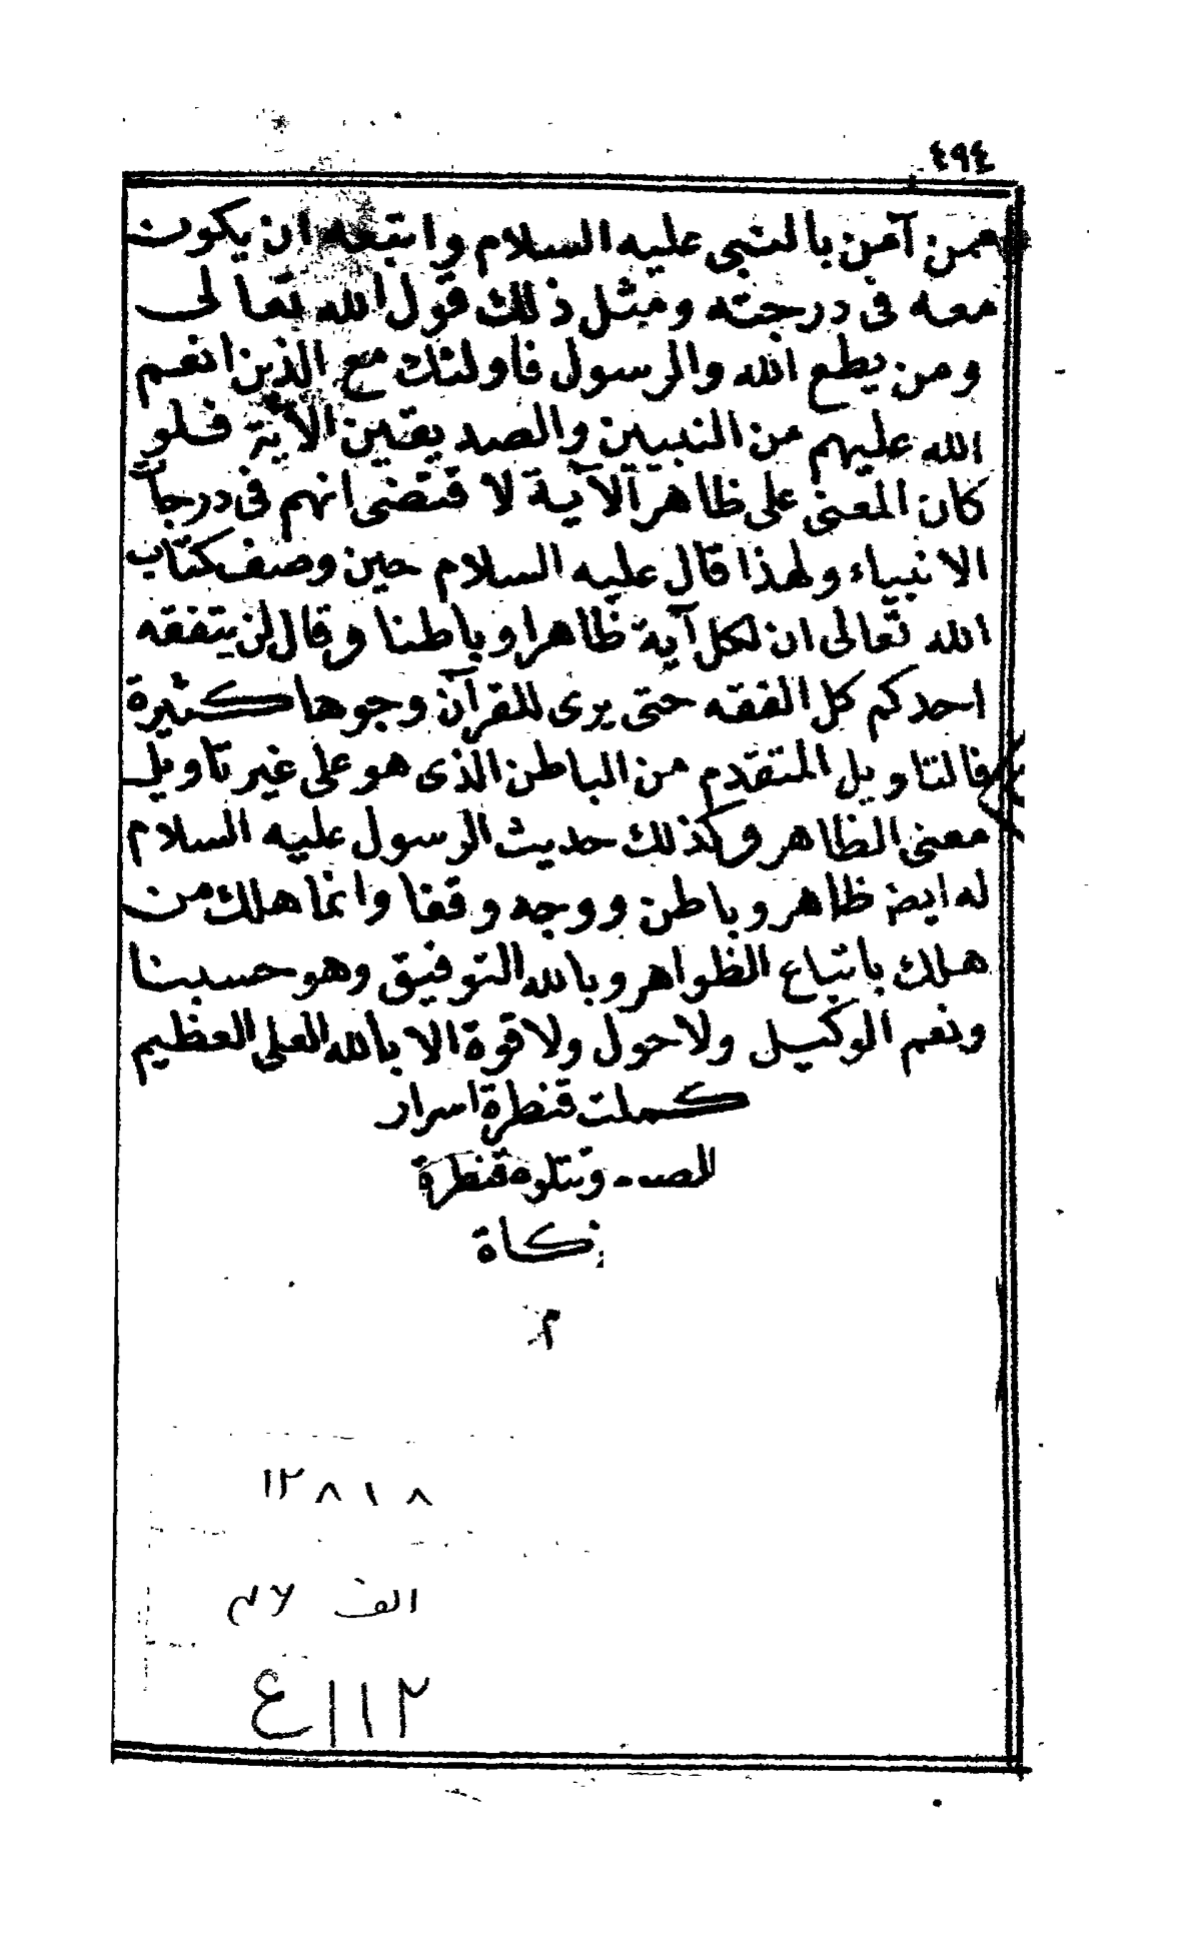 ٤٩٤
ممن آمن بالنبى عليه السلام واتبعه ان يكون
معه فى درجته ومثل ذلك قول الله تعالى
ومن يطع الله والرسول فاولئك مع الذين انعم
الله عليهم من النبيين والصديقين الآية فلو
كان المعنى على ظاهر الآية لاقتضى انهم فى درجات
الانبياء ولهذا قال عليه السلام حين وصف كتاب
الله تعالى ان لكل آية ظاهرا وباطنا وقال لن يتفقه
احدكم كل الفقه حتى يرى للقرآن وجوها كثيرة
فالتاويل المتقدم من الباطن الذى هو على غير تاويل
معنى الظاهر وكذلك حديث الرسول عليه السلام
له ايض ظاهر وباطن ووجه وقفا وانما هلك من
هلك باتباع الظواهر وبالله التوفيق وهو حسبنا
ونعم الوكيل ولا حول ولا قوة الا بالله العلى العظيم
كملت قنطرة اسرار
وتتلوه قنطرة
زكاة
م
١٢٨١٨
الف
ع١١٢